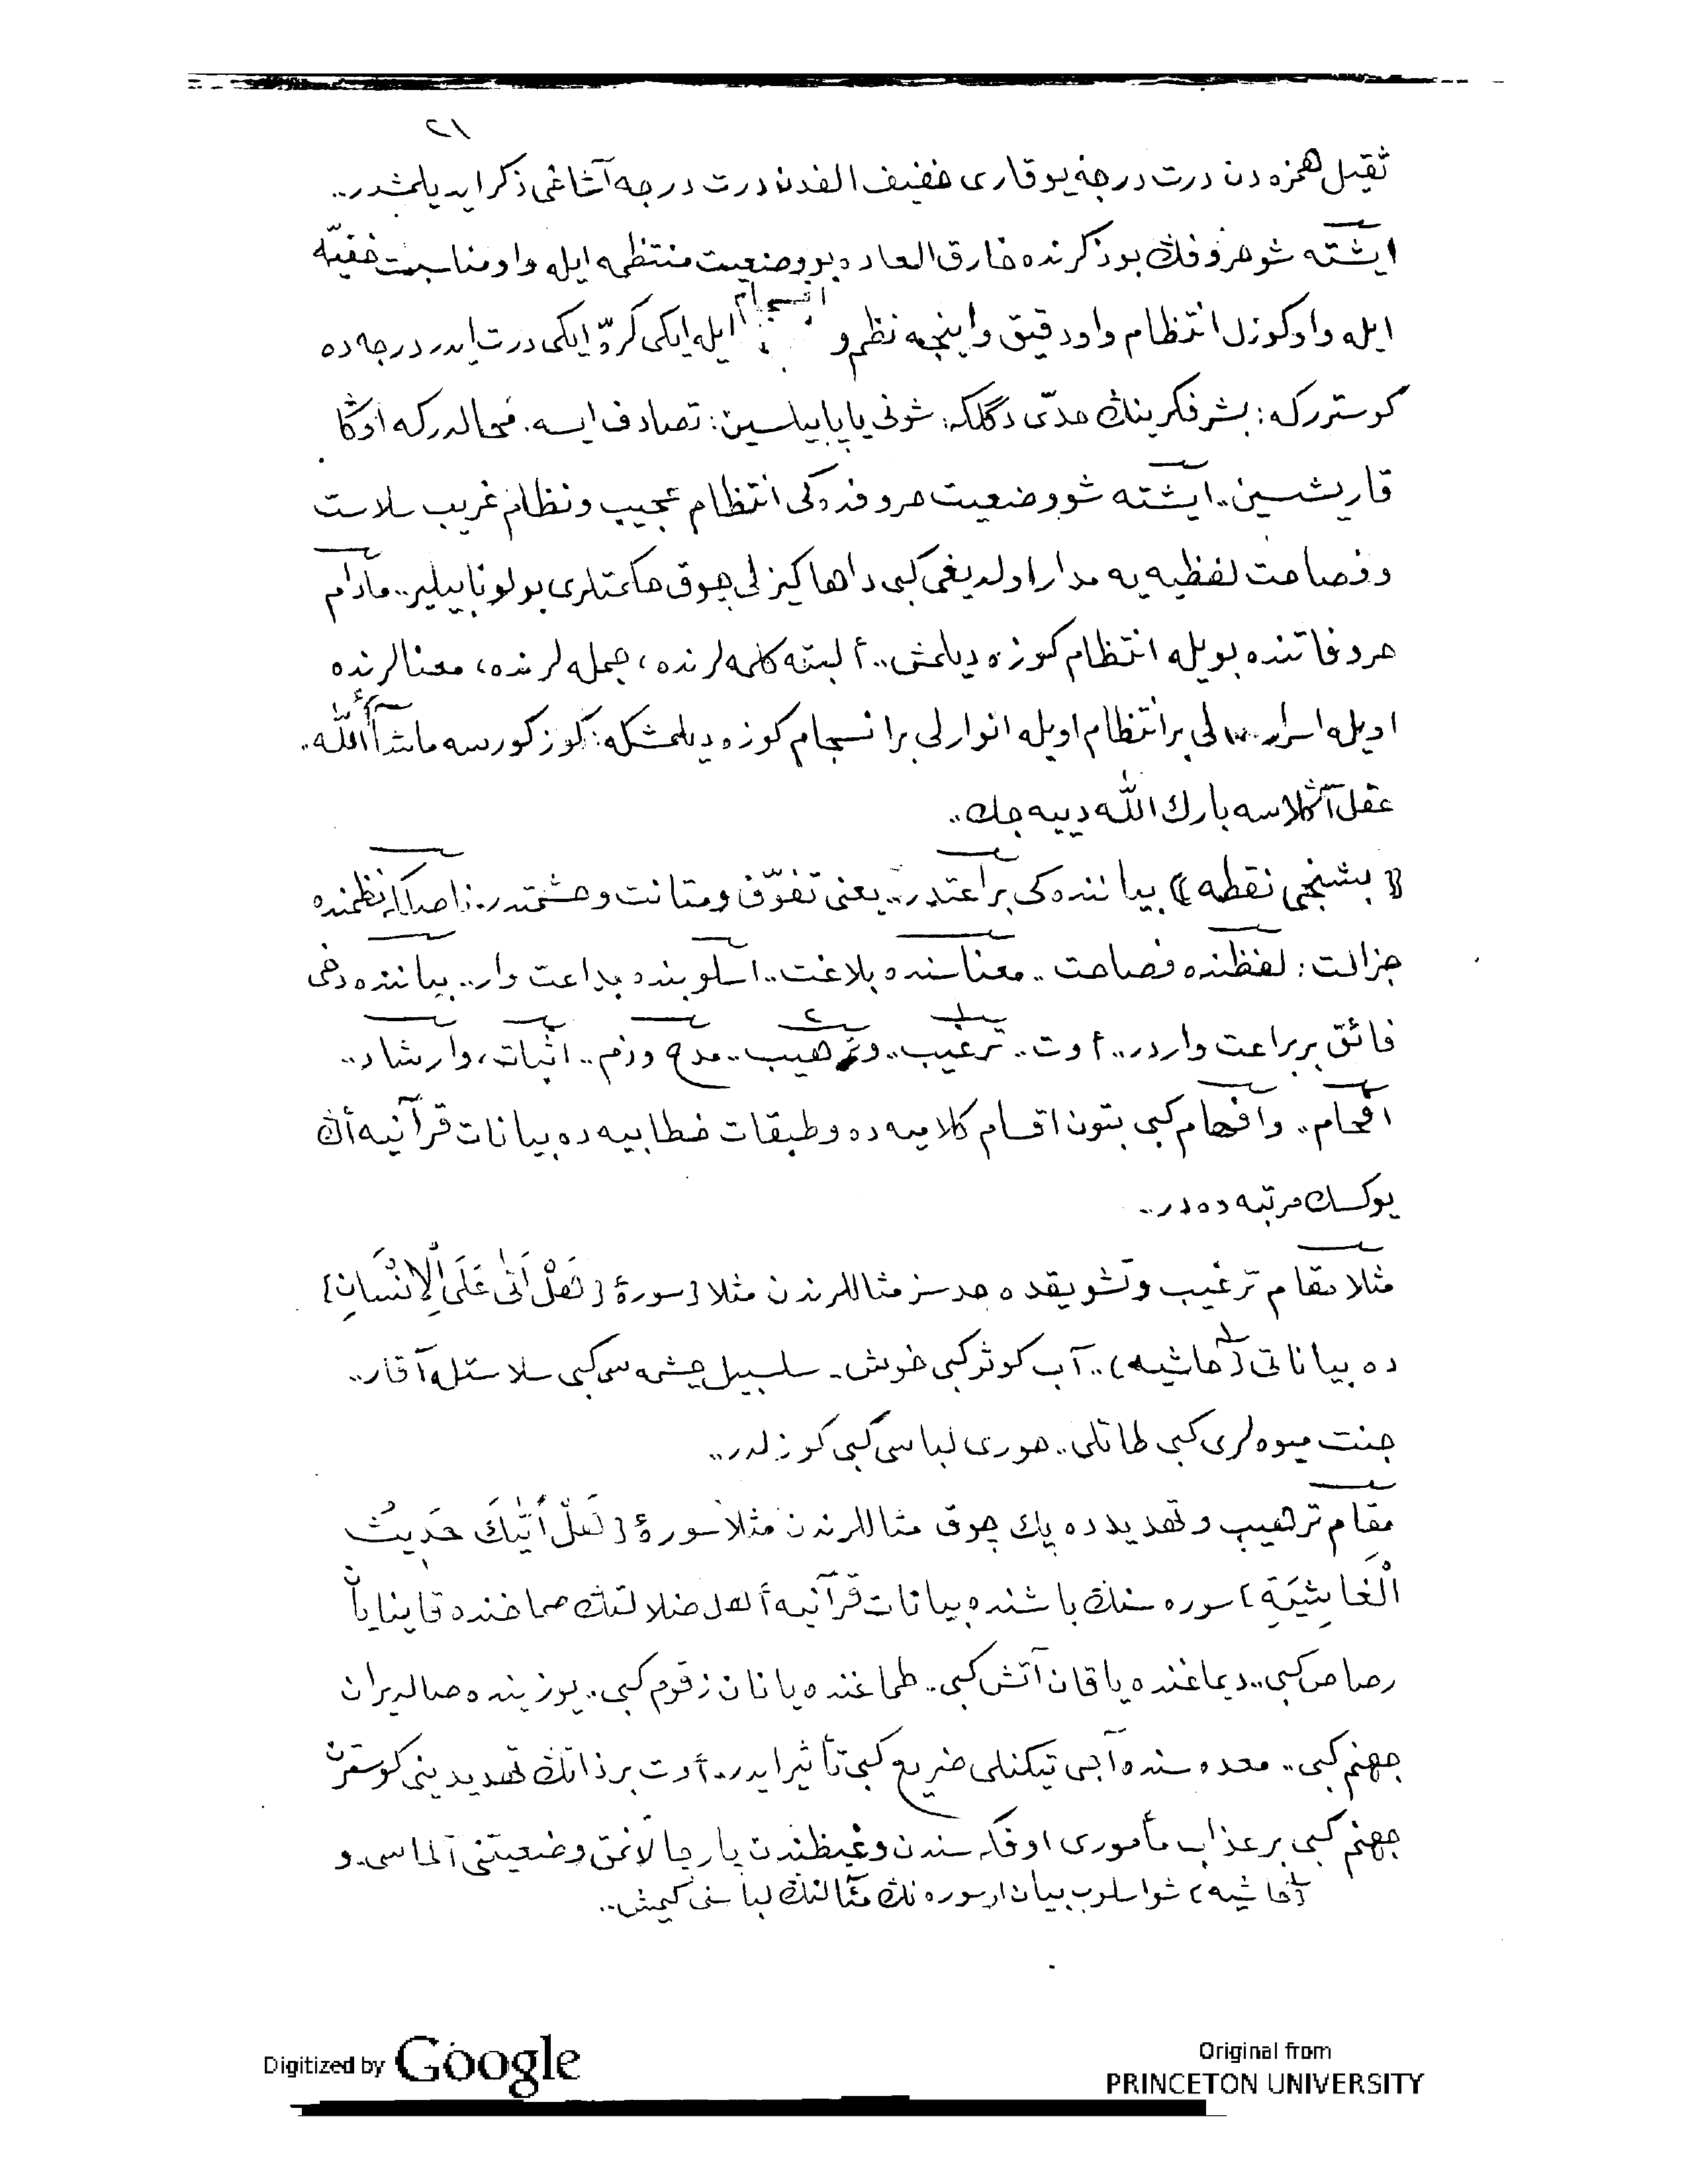 ٢١
ثقیل همزه‌دن درت درجه یوقاری خفیف الفدن درت درجه آشاغی ذکر ایدیلمشدر..
ایشته شو حروفڭ بو ذکرنده خارق العاده بو وضعیت منتظمه ایله واو مناسبت خفیّه
ایله واو کوزل انتظام واو دقیق واینجه نظم و انسجام ایله ایکی کرّه ایکی درت ایدر درجه‌ده
کوسترركه: بشر فکرینڭ حدّی دگلكه: شونی یاپابیلسین: تصادف ایسه. محالدركه اوڭا
قاریشسین.. ایشته شو وضعیت حروفده‌کی انتظام عجیب ونظام غریب سلاست
وفصاحت لفظیه‌یه مدار اولدیغی کبی داها کیزلی چوق حکمتلری بولونابیلیر.. مادام
حروفاتنده بویله انتظام کوزه‌دیلمش.. ألبته کلمه‌لرنده، جمله‌لرنده، معنالرنده
اویله اسرارلی بر انتظام اویله انوارلی بر انسجام کوزه‌دیلمشكه: کوز کورسه ماشاألله.
عقل آڭلاسه بارك الله دییه‌جك..
﴿ بشنجی نقطه ﴾ بیاننده‌کی براعتدر.. یعنی تفوّق ومتانت وحشمتدر.. ناصلكه نظمنده
جزالت: لفظنده فصاحت.. معناسنده بلاغت.. اسلوبنده بداعت وار.. بیاننده دخی
فائق بر براعت واردر.. أوت.. ترغیب.. وترهیب.. مدح وذم.. اثبات، وارشاد..
افحام.. وافهام کبی بتون اقسام کلامیه‌ده وطبقات خطابیه‌ده بیانات قرآنیه أڭ
یوکسك مرتبه‌ده‌در..
مثلا مقام ترغیب وتشویقده حدسز مثاللرندن مثلا [سورۀ [هَلْ اَتٰى عَلَى الْاِنْسَانِ]
ده بیاناتی [١ حاشیه].. آب کوثر کبی خوش. سلسبیل چشمه‌سی کبی سلاستله آقار..
جنت میوه‌لری کبی طاتلی.. حوری لباسی کبی کوزلدر..
مقام ترهیب وتهدیدده پك چوق مثاللرندن مثلا سورۀ [هَلْ أَتٰيكَ حَدٖيثُ
الْغَاشِيَةِ] سوره‌سنڭ باشنده بیانات قرآنیه أهل ضلالتڭ صماخنده قاینایان
رصاص کبی.. دیماغنده یاقان آتش کبی.. طماغنده یانان زقوم کبی.. یوزینده صالدیران
جهنم کبی.. معده‌سنده آجی تیکنلی ضریع کبی تأثیر ایدر.. أوت بر ذاتڭ تهدیدینی کوسترن
جهنم کبی بر عذاب مأموری اوفکه‌سندن وغیظندن پارچالانمق وضعیتنی آلماسی. و
[١ حاشیه] شو اسلوب بیان او سوره‌نڭ مئالنڭ لباسنی کیمش..
Digitized by Google
Original from
PRINCETON UNIVERSITY